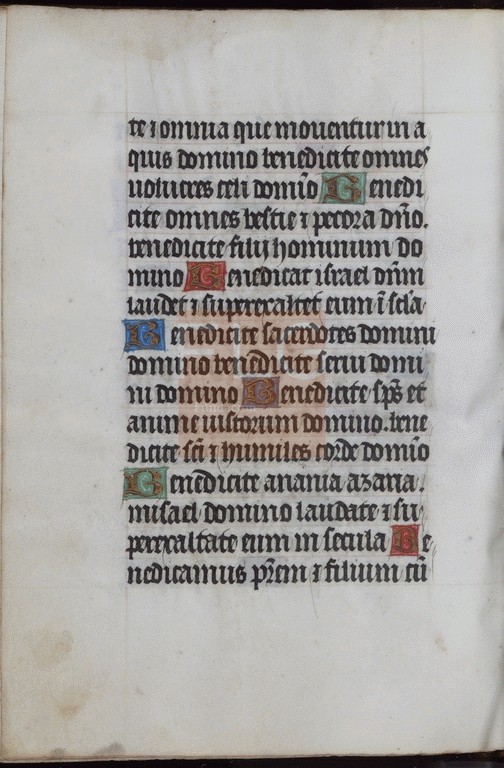 te ⁊ omnia que mouentur in a
quis domino benedicite omnes
uolucres celi domĩo Benedi
cite omnes bestie ⁊ pecora dño.
benedicite filij hominum do
mino Benedicat israel dñm
laudet ⁊ superexaltet eum ĩ scła
Benedicite sacerdotes domini
domino benedicite serui domi
ni domino Benedicite sps̃ et
anime iustorum domino. bene
dicite sc̃i ⁊ humiles corde domĩo
Benedicite anania azaria.
misael domino laudate ⁊ su
perexaltate eum in secula Be
nedicamus pr̃em ⁊ filium cũ